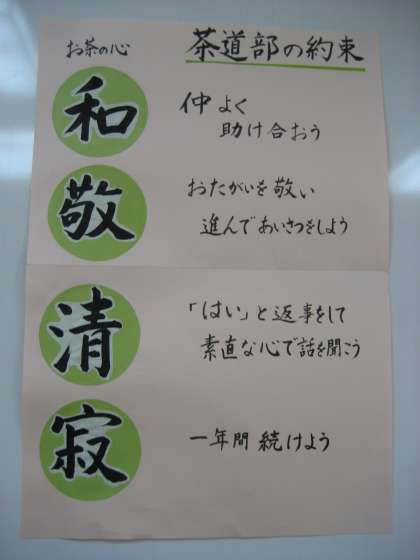 茶道部の約束
お茶の心
和
仲よく
助け合おう
敬
おたがいを敬い
進んであいさつをしよう
清
「はい」と返事をして
素直な心で話を聞こう
寂
一年間続けよう